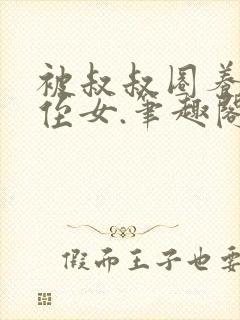 被叔叔圈养
侄女.笔趣阁
假而王子也要